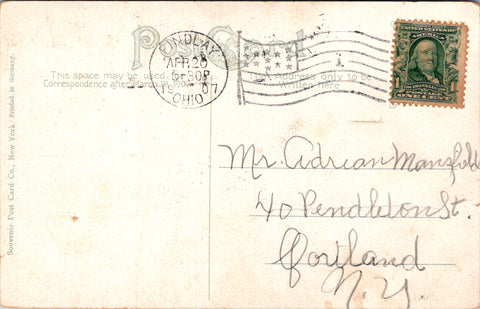 Post Card
This space may be used
Correspondence after March
Address only to be
Written Here
FINDLAY
APR 20
5-30P
1907
OHIO
Mr. Adrian Mansfield
40 Pendleton St.
Cortland
N.Y.
Souvenir Post Card Co., New York. Printed in Germany.